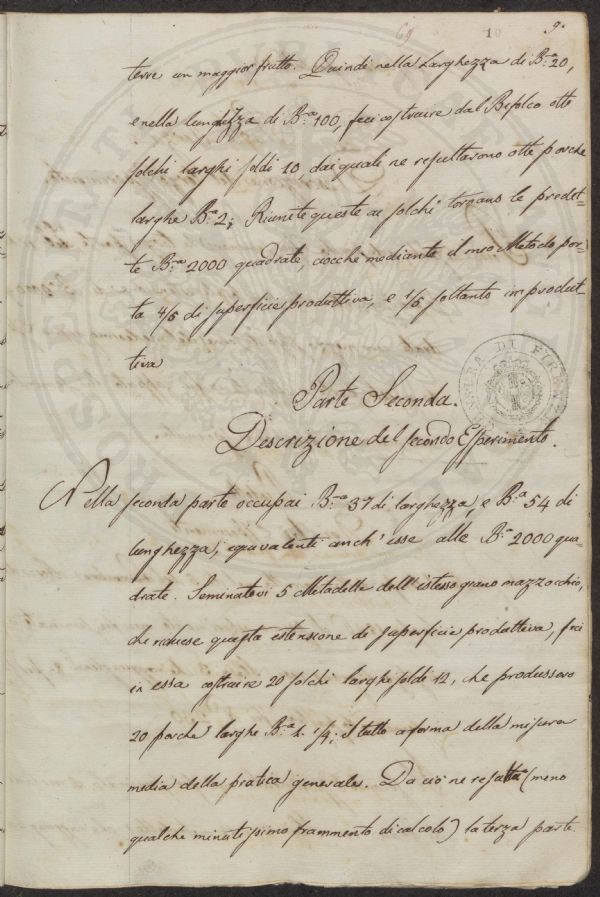 60 10 9.
terre un maggior frutto. Quindi nella Larghezza di B.ª 20,
e nella lunghezza di B.ª 100, feci costruire dal Bifolco otto
solchi larghi soldi 10, dai quali ne resultavono otto porche
larghe B.ª 2; Riunite queste ai solchi tornano le predet-
te B.ª 2000 quadrate, ciocchè mediante il mio Metodo por-
ta 4/5 di superficie produttiva, e 1/5 soltanto improdut-
tiva
Parte Seconda.
Descrizione del secondo Esperimento.
Nella seconda parte occupai B.ª 37 di larghezza, e B.ª 54 di
lunghezza, equivalenti anch' esse alle B.ª 2000 qua-
drate. Seminatovi 5 Metadelle dell' istesso grano mazzocchio,
che riduese questa estensione di superficie produttiva, feci
in essa costruire 20 solchi larghi soldi 12, che produssero
20 porche larghe B.ª 1. 1/4; Il tutto a forma della misura
media della pratica generale. Da ciò ne resulta (meno
qualche minutissimo frammento di calcolo) la terza parte